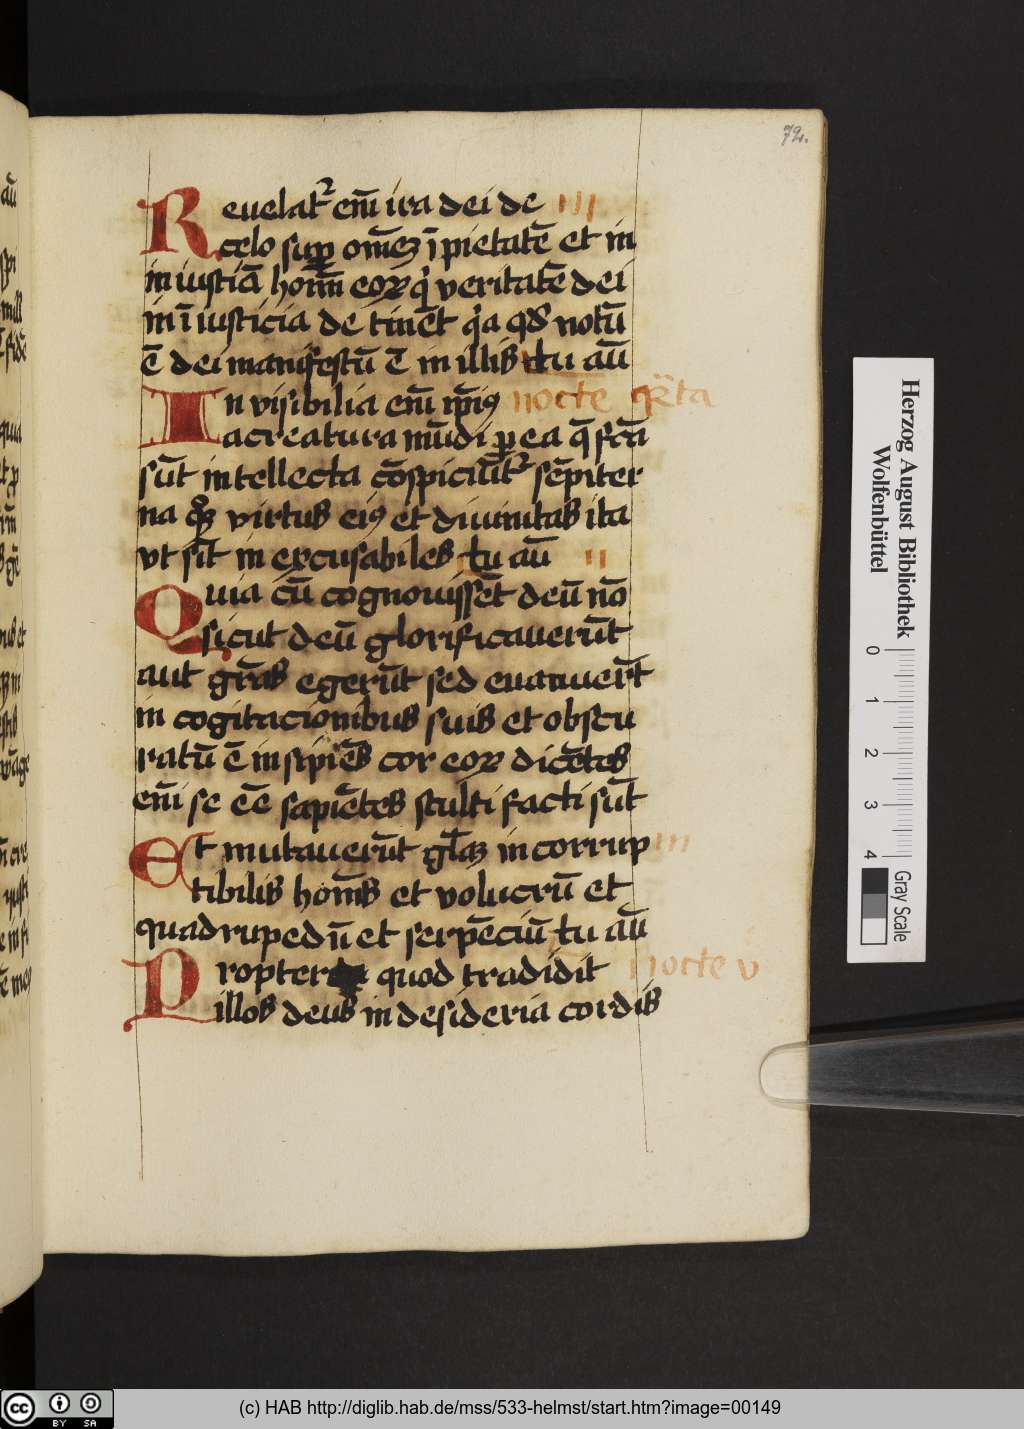 72.
Reuelatᷣ em̄ ira dei de III
celo suꝑ om̄eꝫ īpietatē et in
in iusticiā hom̄ eoꝝ q̇ veritatē dei
in iniusticia de tinēt q̇a qd̓ notū
ē dei manifestū ē in illis tu aū
In visibilia em̄ ip̄iꝰ nocte qͣrta
acreatura mūdi ꝑ ea q̄ fcā
sūt intellecta cōspiciūtᷣ sēpiter
na qͦꝫ virtus eiꝰ et diuinitas ita
vt sīt in excusabiles tu aū II
Quia cū cognouissēt deū nō
sicut deū glorificauerūt
aut grās egerūt sed euanuer̄t
in cogitacionibus suis et obscu
ratū ē insipiēs cor eoꝝ dicētes
em̄i se eē sapiētes stulti facti sūt
Et mutauerūt gl̄aꝫ incorrup III
tibilis homīs et volucrū et
quadrupedū et serpēciū tu aū
Propter quod tradidit nocte v
illos deus in desideria cordis
Herzog August Bibliothek
Wolfenbüttel
0 1 2 3 4
Gray Scale
cc BY SA
(c) HAB http://diglib.hab.de/mss/533-helmst/start.htm?image=00149